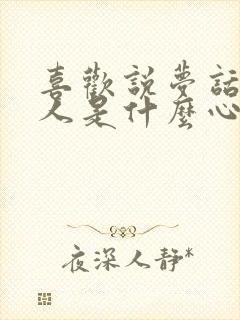 喜歡說夢話
人是什麼心
夜深人靜*